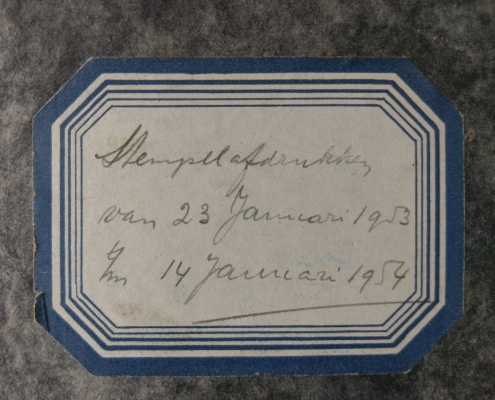 Stempelafdrukken
van 23 Januari 1953
t/m 14 Januari 1954